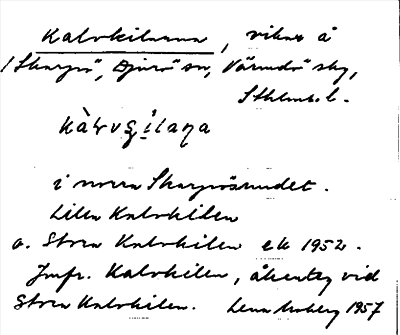 Kalvkilarna, vikar å
/Skarpö, Djurö sn, Värmdö skg,
Sthlms l.
i norra Skarpösundet.
Lilla Kalvkilen
o. Stora Kalvkilen ek 1952.
Jmfr. Kalvkilen, åkertäg vid
Stora Kalvkilen. Lena Moberg 1957